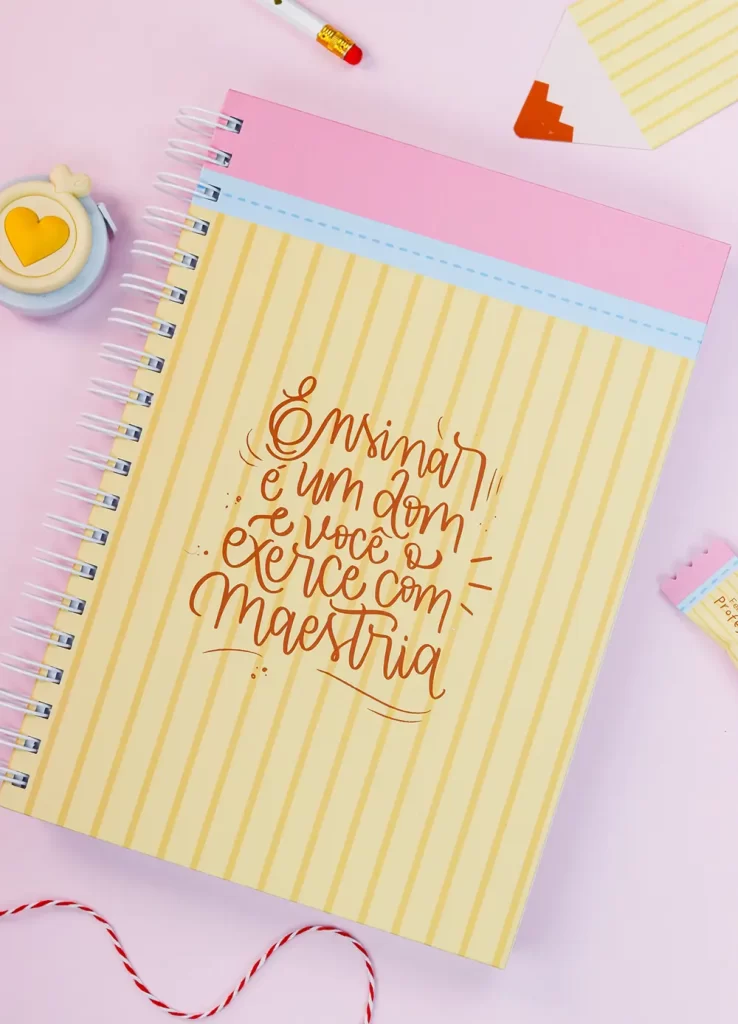 Ensinar
é um dom
e você o
exerce com
maestria